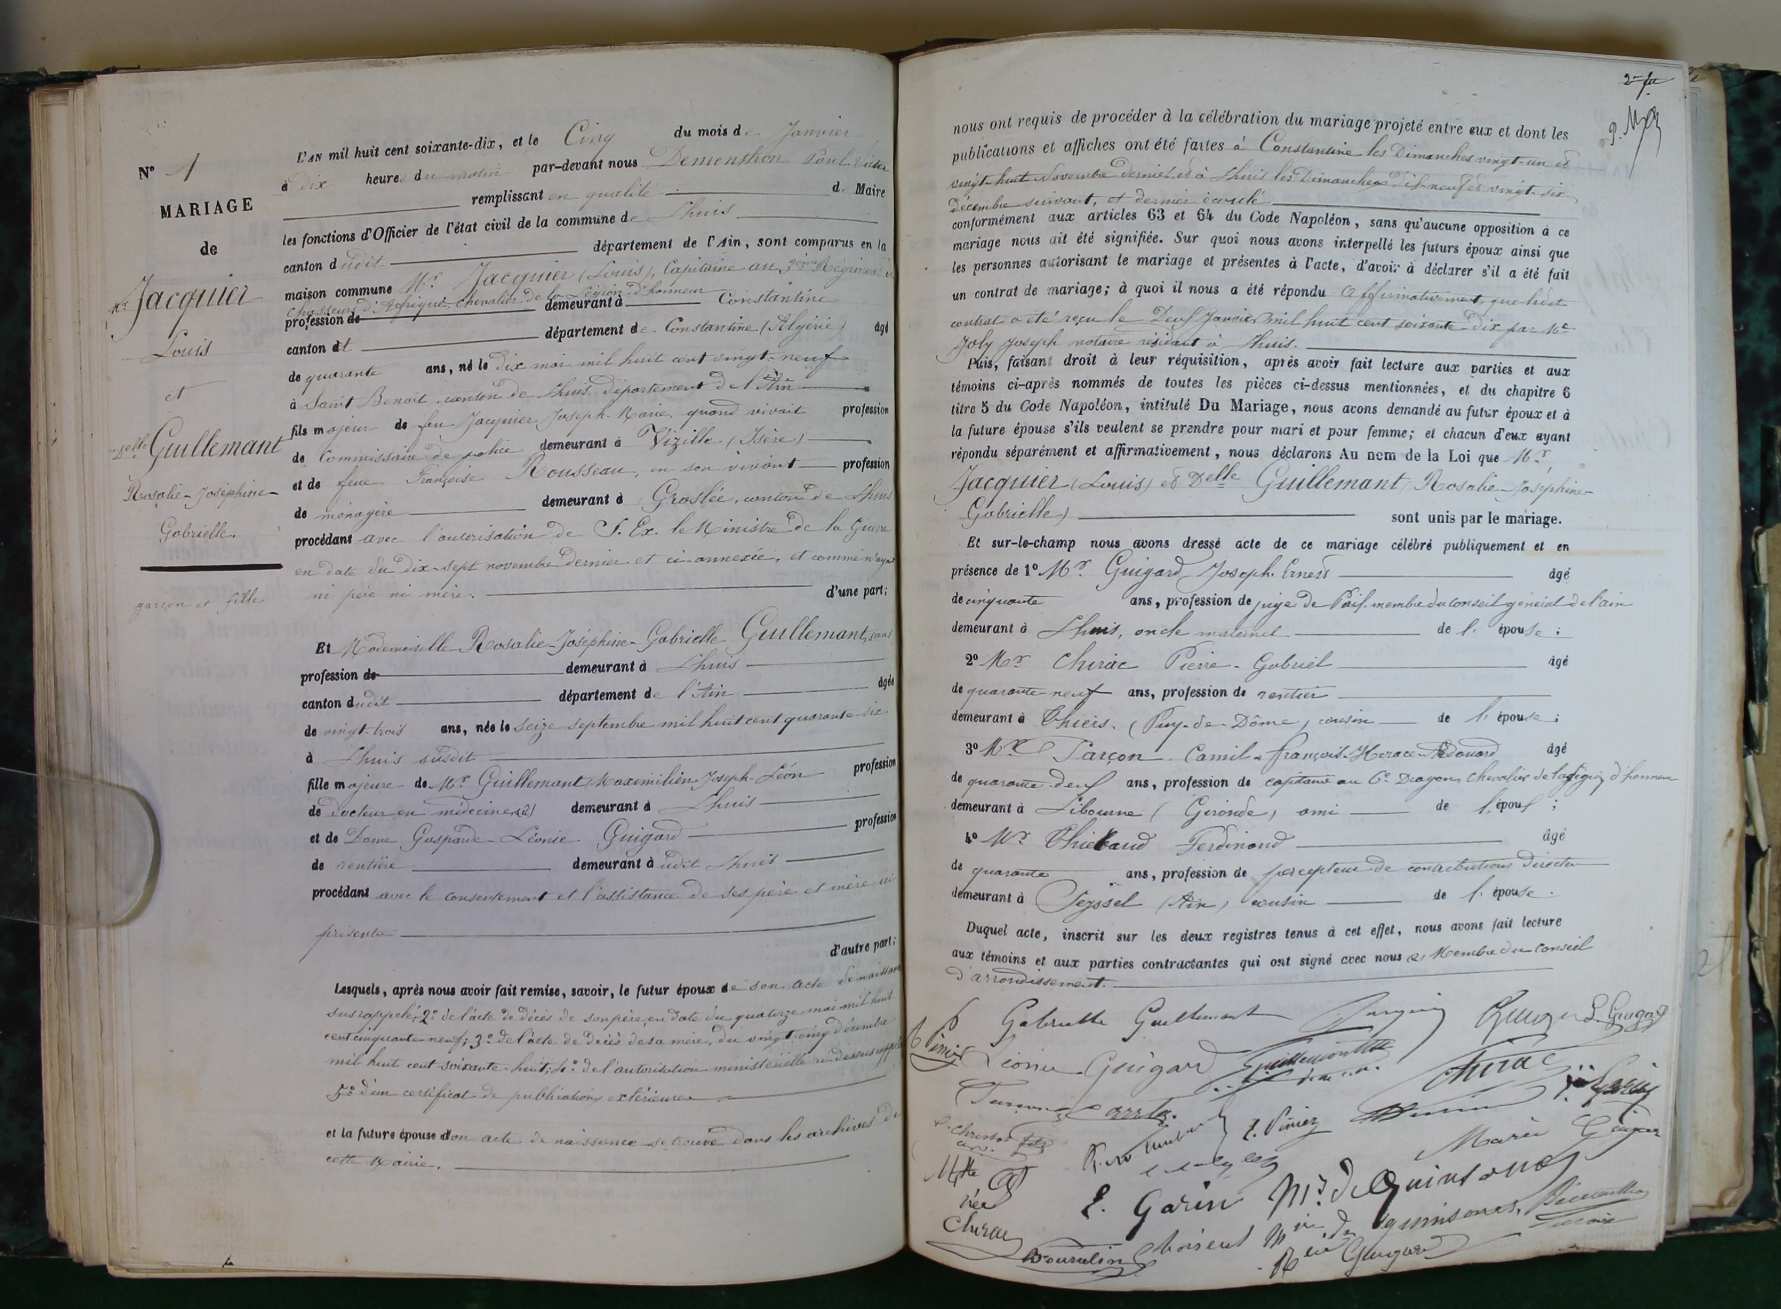 N° 1
MARIAGE
de
Mr Jacquier
Louis
et
Delle Guillemant
Rosalie-Joséphine-
Gabrielle.
garçon et fille
L'AN mil huit cent soixante-dix, et le Cinq du mois de Janvier
à dix heures du matin par-devant nous Demonshon Paul
remplissant en qualité de Maire
les fonctions d'Officier de l'état civil de la commune de Lhuis
canton dudit département de l'Ain, sont comparus en la
maison commune Mr. Jacquier (Louis), Capitaine au Régiment de
Chasseurs d'Afrique, chevalier de la Légion d'honneur
profession de demeurant à Constantine
canton dt département de Constantine (Algérie) âgé
de quarante ans, né le dix mai mil huit cent vingt-neuf
à Saint Benoit canton de Lhuis, département de l'Ain
fils majeur de feu Jacquier Joseph-Marie, quand vivait profession
de Commissaire de police demeurant à Vizille (Isère)
et de feue Françoise Rousseau, en son vivant profession
de ménagère demeurant à Groslée, canton de Lhuis
procédant avec l'autorisation de S. Ex. le Ministre de la Guerre
en date du dix-sept novembre dernier et ci-annexée, et comme n'ayant
ni père ni mère. d'une part;
Et Mademoiselle Rosalie-Joséphine-Gabrielle Guillemant, sans
profession de demeurant à Lhuis
canton dudit département de l'Ain âgée
de vingt-trois ans, née le seize septembre mil huit cent quarante-six
à Lhuis susdit
fille majeure de Mr Guillemant Maximilien-Joseph-Léon profession
de docteur en médecine (a) demeurant à Lhuis
et de Dame Gasparde-Léonie Guigard profession
de rentière demeurant à udit Lhuis
procédant avec le consentement et l'assistance de ses père et mère ici
présents
d'autre part;
Lesquels, après nous avoir fait remise, savoir, le futur époux de son acte de naissance
susrappelé; 2° de l'acte de décès de son père, en date du quatorze mai mil huit
cent cinquante-neuf; 3° de l'acte de décès de sa mère, du vingt-cinq décembre
mil huit cent soixante-huit; 4° de l'autorisation ministérielle ci-dessus rappelée
5° d'un certificat de publications extérieures
et la future épouse d'on acte de naissance se trouve dans les archives de
cette Mairie.
nous ont requis de procéder à la célébration du mariage projeté entre eux et dont les
publications et affiches ont été faites à Constantine les Dimanches vingt-un et
vingt-huit Novembre dernier et à Lhuis les Dimanches dix-neuf et vingt-six
Décembre suivant, et dernier écoulé
conformément aux articles 63 et 64 du Code Napoléon, sans qu'aucune opposition à ce
mariage nous ait été signifiée. Sur quoi nous avons interpellé les futurs époux ainsi que
les personnes autorisant le mariage et présentes à l'acte, d'avoir à déclarer s'il a été fait
un contrat de mariage; à quoi il nous a été répondu affirmativement que ledit
contrat a été reçu le Deux Janvier mil huit cent soixante-dix par Me
Joly Joseph notaire résidant à Lhuis.
Puis, faisant droit à leur réquisition, après avoir fait lecture aux parties et aux
témoins ci-après nommés de toutes les pièces ci-dessus mentionnées, et du chapitre 6
titre 5 du Code Napoléon, intitulé Du Mariage, nous avons demandé au futur époux et à
la future épouse s'ils veulent se prendre pour mari et pour femme; et chacun d'eux ayant
répondu séparément et affirmativement, nous déclarons Au nom de la Loi que Mr.
Jacquier (Louis) et Delle Guillemant (Rosalie-Joséphine-
Gabrielle) sont unis par le mariage.
Et sur-le-champ nous avons dressé acte de ce mariage célébré publiquement et en
présence de 1° Mr. Guigard Joseph Ernest âgé
de cinquante ans, profession de juge de Paix, membre du conseil général de l'ain
demeurant à Lhuis, oncle maternel de l'épouse;
2° Mr Chirac Pierre-Gabriel âgé
de quarante-neuf ans, profession de rentier
demeurant à Thiers. (Puy-de-Dôme) cousin de l'épouse;
3° Mr Tarçon Camil-françois-Horace-Edouard âgé
de quarante-deux ans, profession de capitaine au 6e Dragons, chevalier de la légion d'honneur
demeurant à Libourne (Gironde) ami de l'époux;
4° Mr Thiebaud Ferdinand âgé
de quarante ans, profession de percepteur de contributions directes
demeurant à Seyssel (Ain) cousin de l'épouse.
Duquel acte, inscrit sur les deux registres tenus à cet effet, nous avons fait lecture
aux témoins et aux parties contractantes qui ont signé avec nous (a) Membre du conseil
d'arrondissement.
Gabrielle Guillemant Jacquier Guigard L. Guigard
Léonie Guigard Chirac
L. Pinier
Marie Guigard
L. Garin Mr. de Quinsonas
née
Chirac
Bourdin